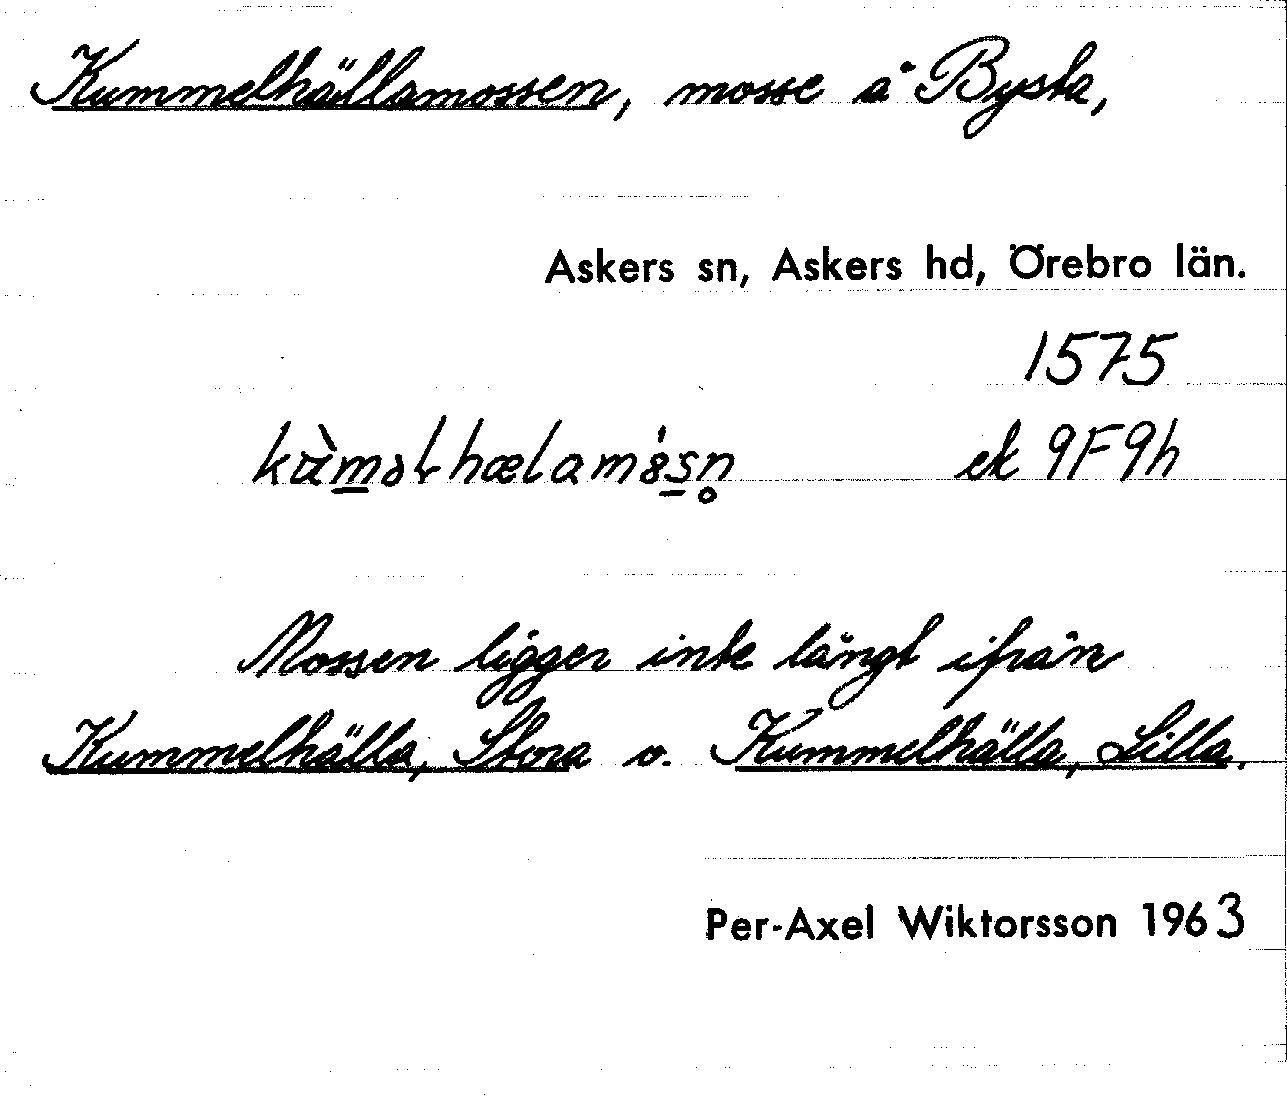 Kummelhällamossen, mosse å Bysta,
Askers sn, Askers hd, Örebro län.
1575
ek 9F9h
Mossen ligger inte långt ifrån
Kummelhälla, Stora o. Kummelhälla, Lilla.
Per-Axel Wiktorsson 1963